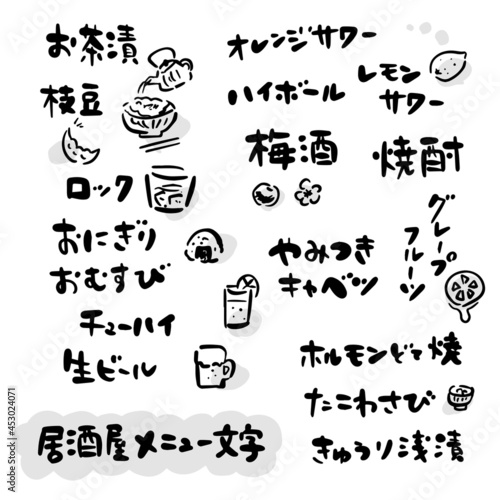 お茶漬
枝豆
ロック
おにぎり
おむすび
チューハイ
生ビール
居酒屋メニュー文字
オレンジサワー
ハイボール
レモン
サワー
梅酒
焼酎
グレープ
フルーツ
やみつき
キャベツ
ホルモンどて焼
たこわさび
きゅうり浅漬
Adobe Stock | #453024071